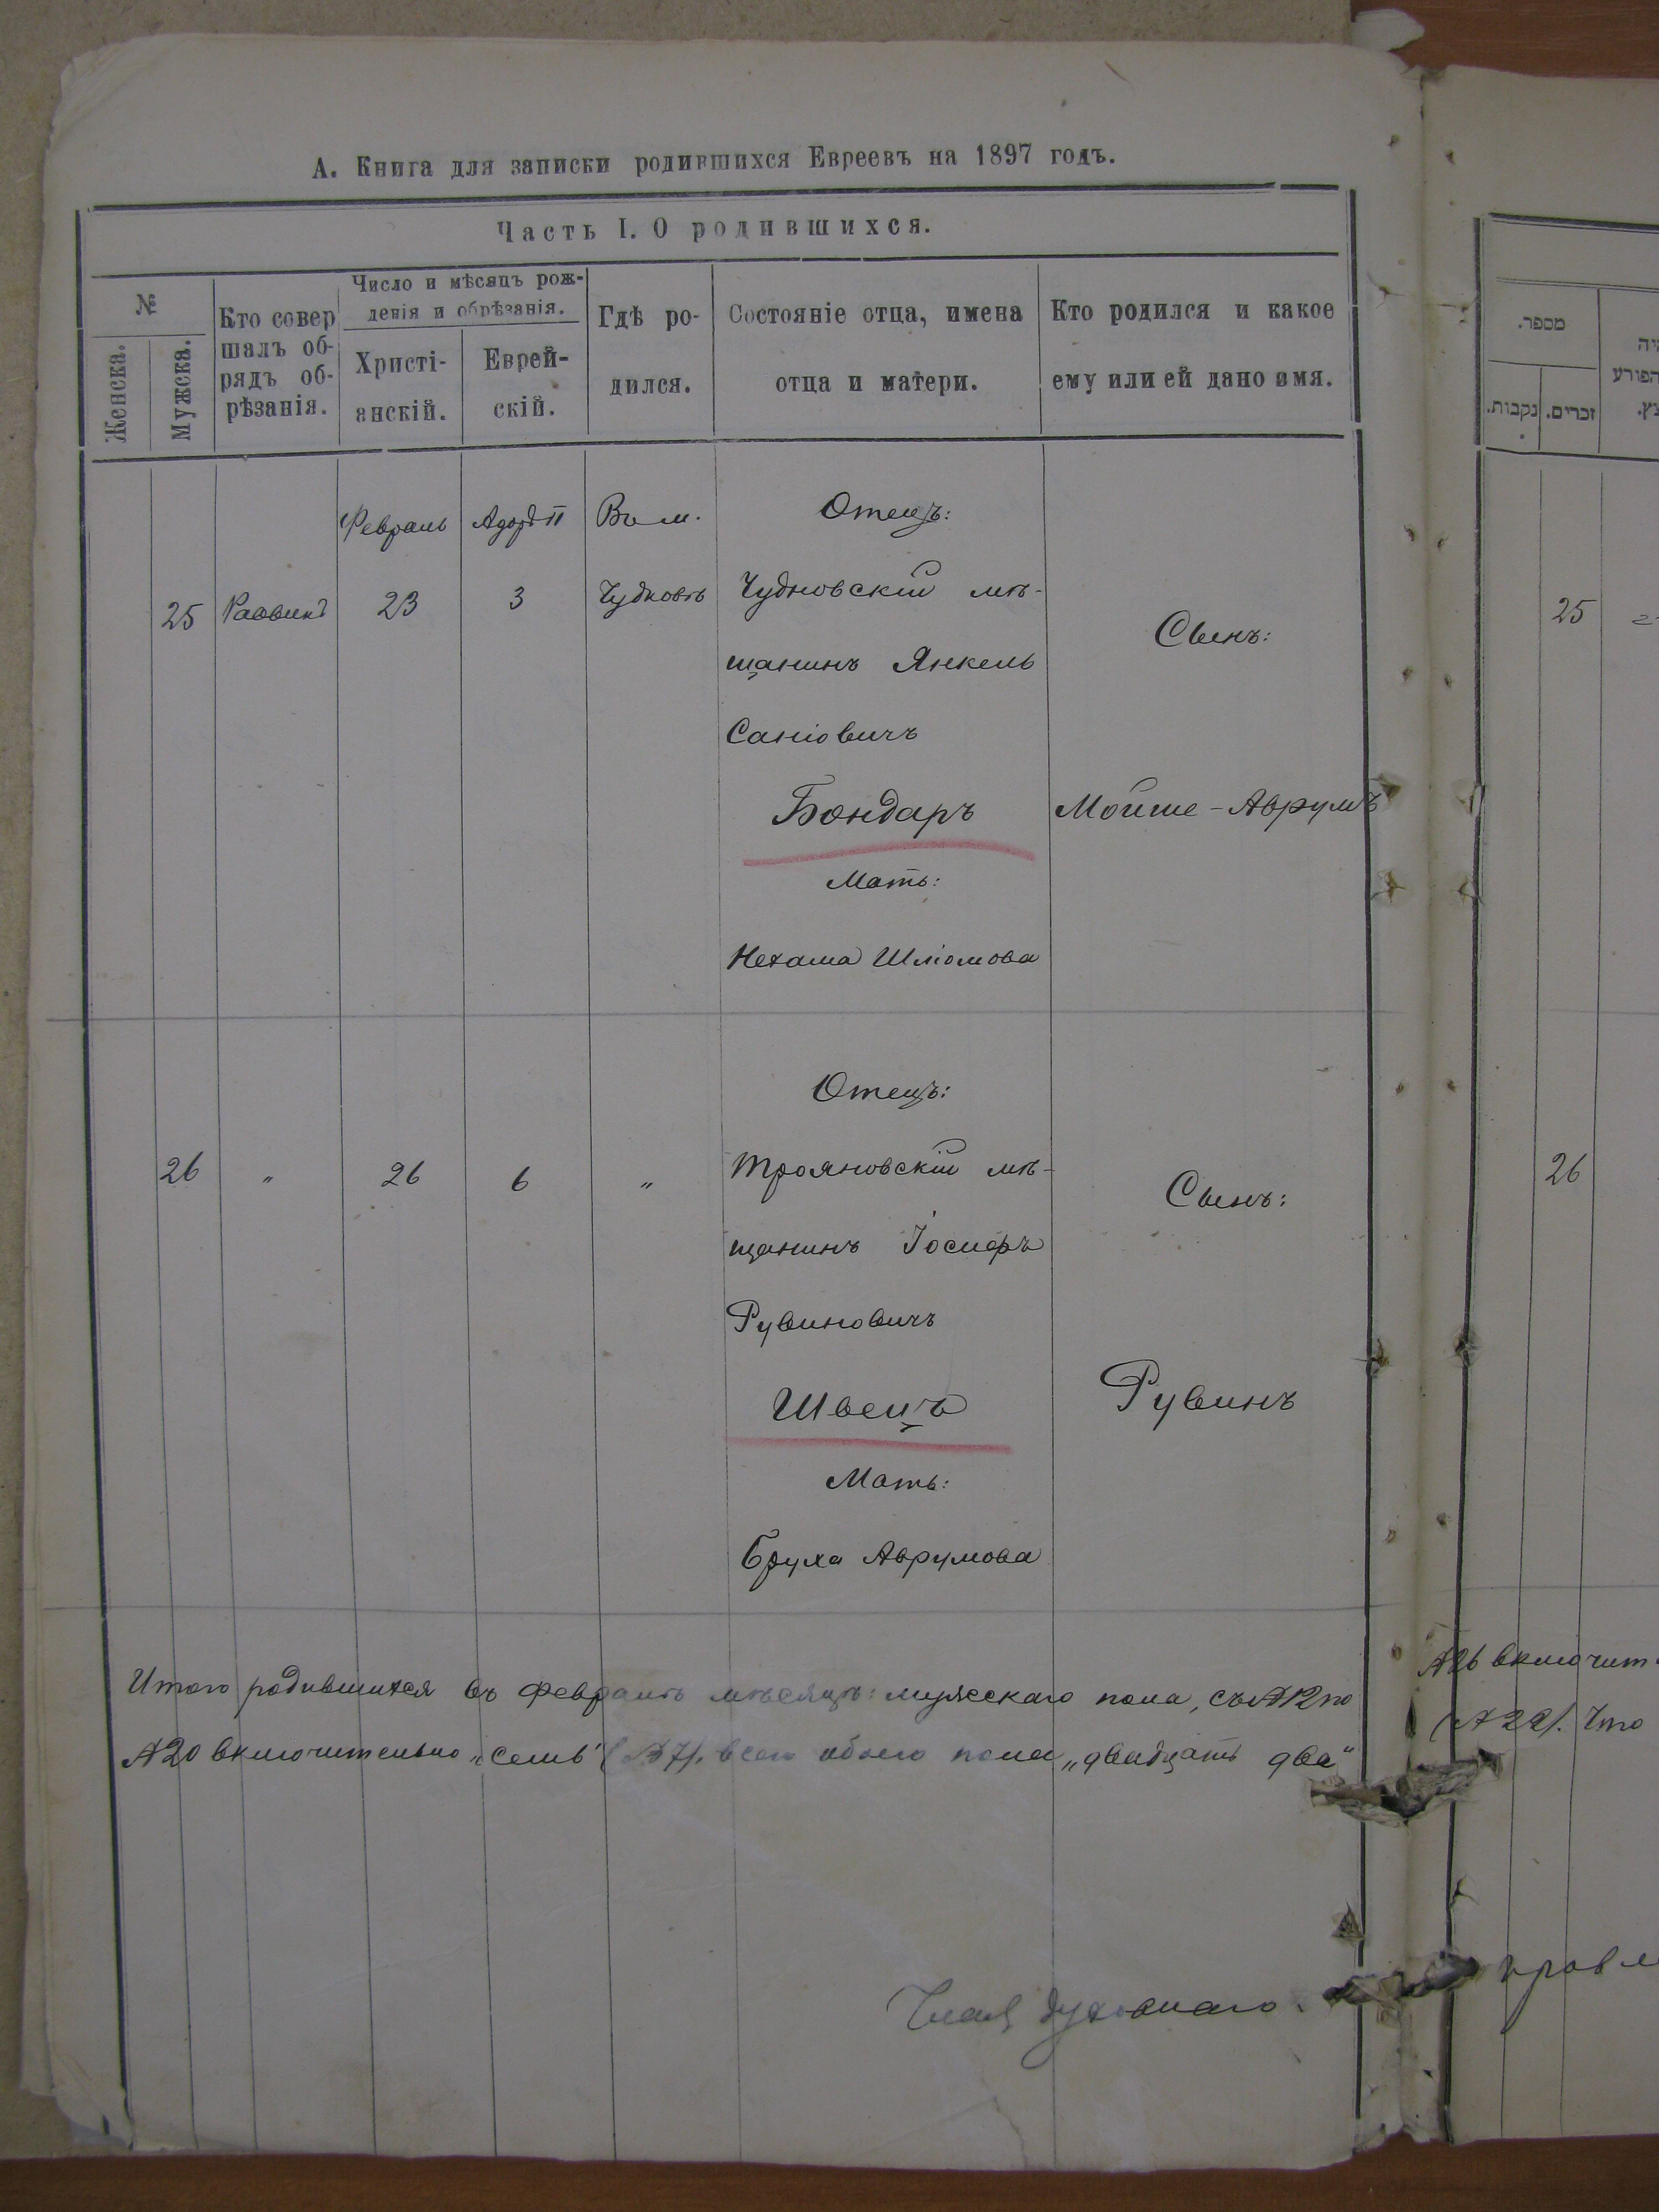 А. Книга для записки родившихся Евреевъ на 1897 годъ.
Часть I. О родившихся.
№
Женска.
Мужска.
Кто совер
шалъ об-
рядъ об-
рѣзанія.
Число и мѣсяцъ рож-
денія и обрѣзанія.
Христі-
анскій.
Еврей-
скій.
Гдѣ ро-
дился.
Состояніе отца, имена
отца и матери.
Кто родился и какое
ему или ей дано имя.
Февраль
Адоръ II
Въ м.
Отецъ:
25
Раввинъ
23
3
Чудновѣ
Чудновскій мѣ-
щанинъ Янкель
Саніовичъ
Бондаръ
Мать:
Нехама Шліомова
Сынъ:
Мойше-Аврумъ
26
"
26
6
"
Отецъ:
Трояновскій мѣ-
щанинъ Іосифъ
Рувиновичъ
Швецъ
Мать:
Бруха Аврумова
Сынъ:
Рувинъ
Итого родившихся въ Февралѣ мѣсяцѣ: мужескаго пола, съ №12 по
№20 включительно „семь" (№7). всего обоего пола „двадцать два"
духовнаго
מספר.
נקבות.
זכרים.
הפורע
25
26
№26 включит
(№22). Что
правл